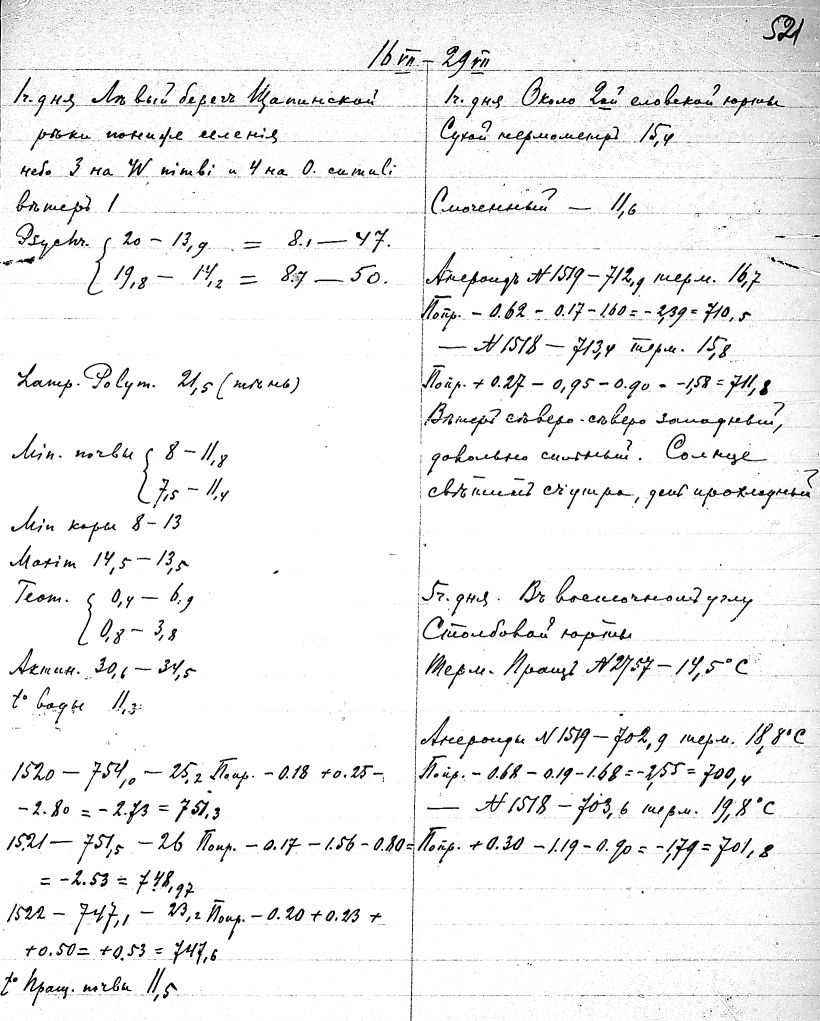 521
16 VII – 29 VII
1ч. дня Лѣвый берегъ Щапинской
рѣки пониже селенія
небо 3 на W nimbi и 4 на O. cumuli
вѣтеръ 1
Psychr. { 20 – 13,9 = 8.1 – 47.
19,8 – 14,2 = 8.7 – 50.
Lamp. Polym. 21,5 (тѣнь)
Min. почвы { 8 – 11,8
7,5 – 11,4
Min коры 8 – 13
Maxim 14,5 – 13,5
Геот. { 0,4 – 6.9
0,8 – 3,8
Актин. 30,6 – 34,5
t° воды 11,3
1520 – 754,0 – 25,2 Попр. – 0.18 + 0.25 –
– 2.80 = – 2.73 = 751,3
1521 – 751,5 – 26 Попр. – 0.17 – 1.56 – 0.80 =
= – 2.53 = 748,97
1522 – 747,1 – 23,2 Попр. – 0.20 + 0.23 +
+ 0.50 = + 0.53 = 747,6
t° Пращ. почвы 11,5
1ч. дня Около 2ой еловской юрты
Сухой термометръ 15,4
Смоченный — 11,6
Анероидъ N 1519 – 712,9 терм. 16,7
Попр. – 0.62 – 0.17 – 1.60 = – 2,39 = 710,5
— N 1518 – 713,4 терм. 15,8
Попр. + 0.27 – 0,95 – 0.90 – – 1,58 = 711,8
Вѣтеръ сѣверо-сѣверо западный,
довольно сильный. Солнце
свѣтитъ съ утра, день прохладный
5ч. дня. Въ восточномъ углу
Столбовой юрты
Терм. Пращъ N 2757 – 14,5°C
Анероиды N 1519 – 702,9 терм. 18,8°C
Попр. – 0.68 – 0.19 – 1.68 = – 2,55 = 700,4
— N 1518 – 703,6 терм. 19,8°C
Попр. + 0.30 – 1.19 – 0.90 = – 1,79 = 701,8